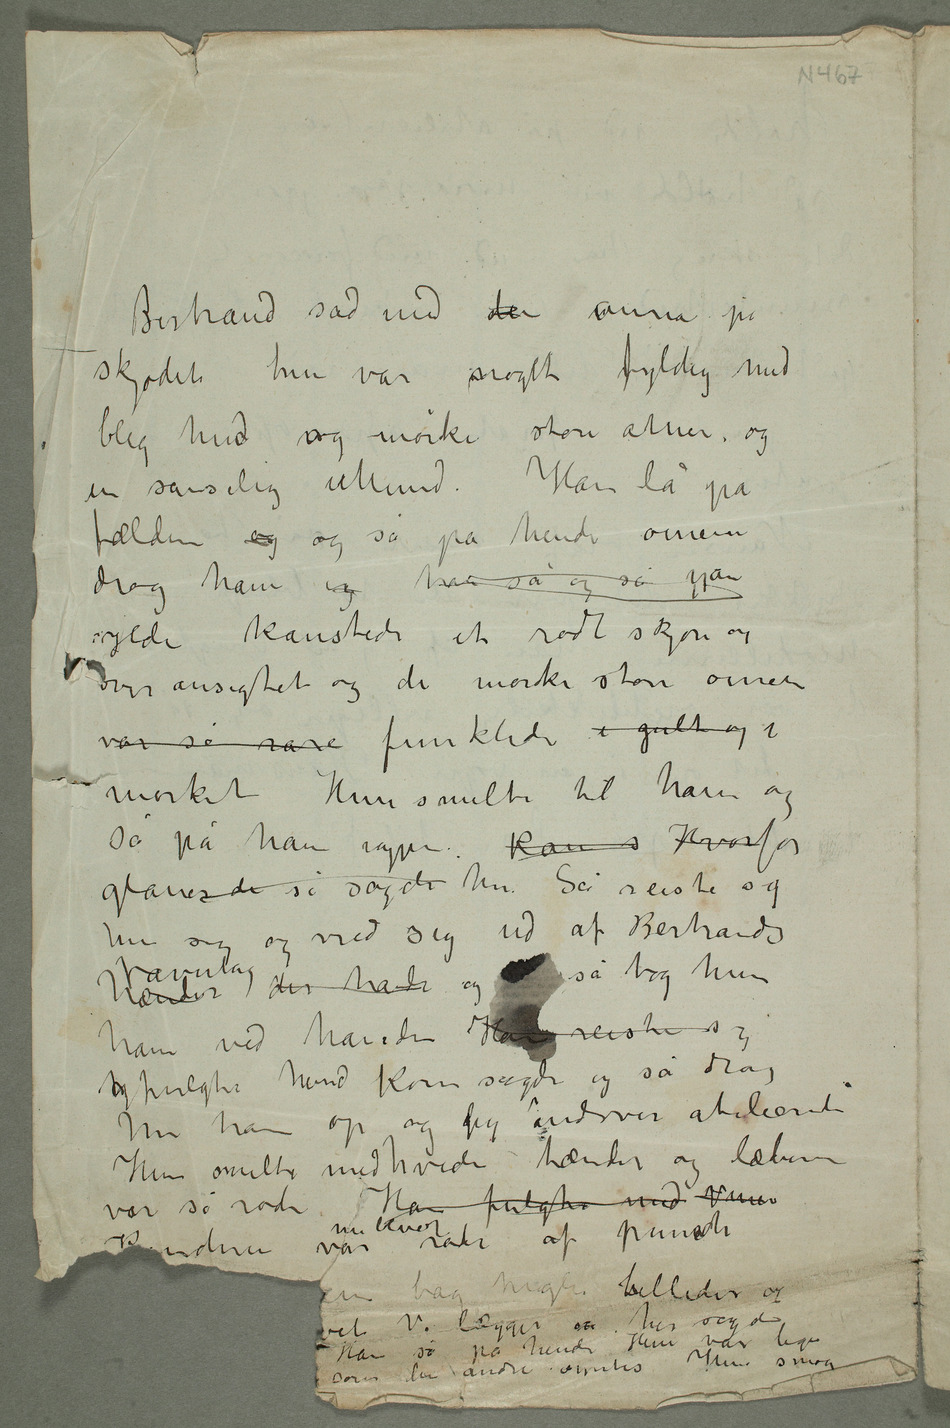 N467
Bertrand sad med den anna på
skjødet hun var noglt fyldig med
bleg hud og mörke store øiner, og
en sanselig Mund. Han lå på
fælden og og så på hende øinene
drog ham og han så og så
fyldte kanstede et rødt skjær og
over ansigtet og de mørke store øinene
var så rare funklede i gult og i
mørket Hun smilte til ham og
så på ham igjen. Kan s Hvorfor
glaner de så sagde hun. Så reiste sig
hun sig og vred sig ud af Bertrands
favntag
hænder der havde og så tog hun
ham ved hånden Han reiste sig
og fulgte hend Kom sagde og så drog
hun ham op og indover atelieret
Hun smilte med hvide tænder og læberne
var så røde Han fulgte med
Kinderne var røde af punsch
bag nogle billeder og
V. lægger her sagde
Han så på hende Hun var lige
som den andre syntes Hun smøg